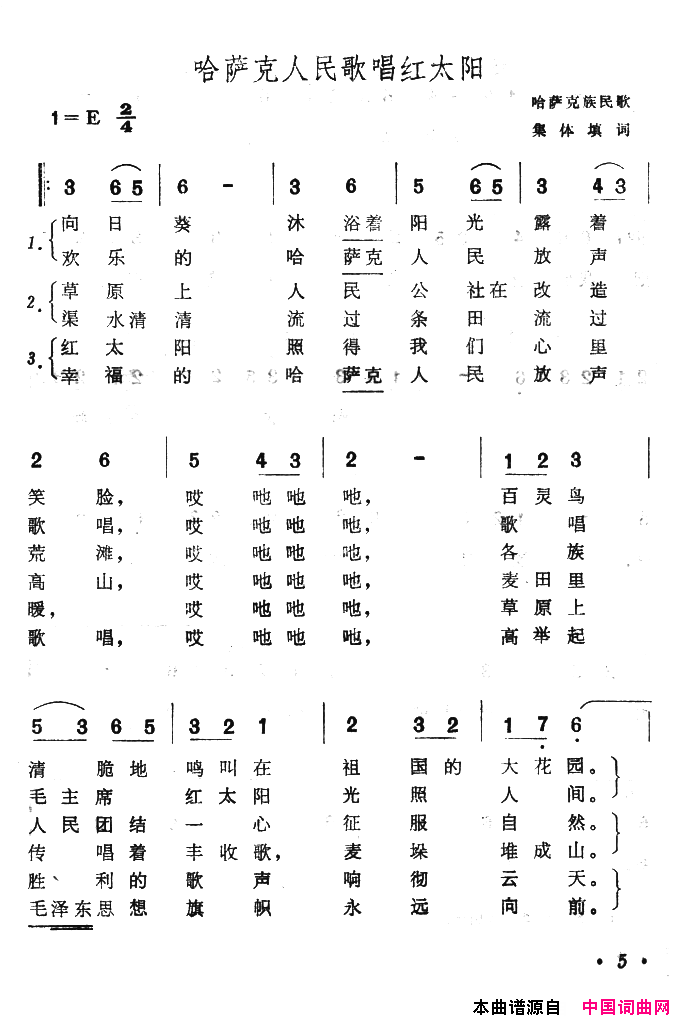 哈萨克人民歌唱红太阳
1=E 2/4
哈萨克族民歌
集体填词
3 65 | 6 - | 3 6 | 5 65 | 3 43 |
1. 向日葵 沐浴着阳光露着
欢乐的 哈萨克人民放声
2. 草原上 人民公社在改造
渠水清清 流过条田流过
3. 红太阳 照得我们心里
幸福的 哈萨克人民放声
2 6 | 5 43 | 2 - | 12 3 |
笑脸, 哎吔吔吔, 百灵鸟
歌唱, 哎吔吔吔, 歌唱
荒滩, 哎吔吔吔, 各族
高山, 哎吔吔吔, 麦田里
暖, 哎吔吔吔, 草原上
歌唱, 哎吔吔吔, 高举起
53 65 | 32 1 | 2 32 | 17 6 |
清脆地鸣叫在祖国的大花园。
毛主席红太阳光照人间。
人民团结一心征服自然。
传唱着丰收歌,麦垛堆成山。
胜利的歌声响彻云天。
毛泽东思想旗帜永远向前。
· 5 ·
本曲谱源自 中国词曲网